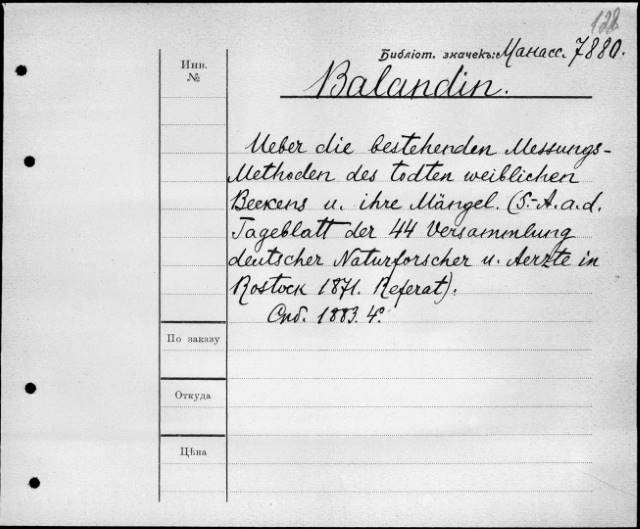 128
Библіот. значекъ: Манасс. 7880.
Инв.
№
Balandin.
Ueber die bestehenden Messungs-
Methoden des todten weiblichen
Beckens u. ihre Mängel. (S.-A. a. d.
Tageblatt der 44 Versammlung
deutscher Naturforscher u. Aerzte in
Rostock 1871. Referat).
Спб. 1883. 4°.
По заказу
Откуда
Цѣна